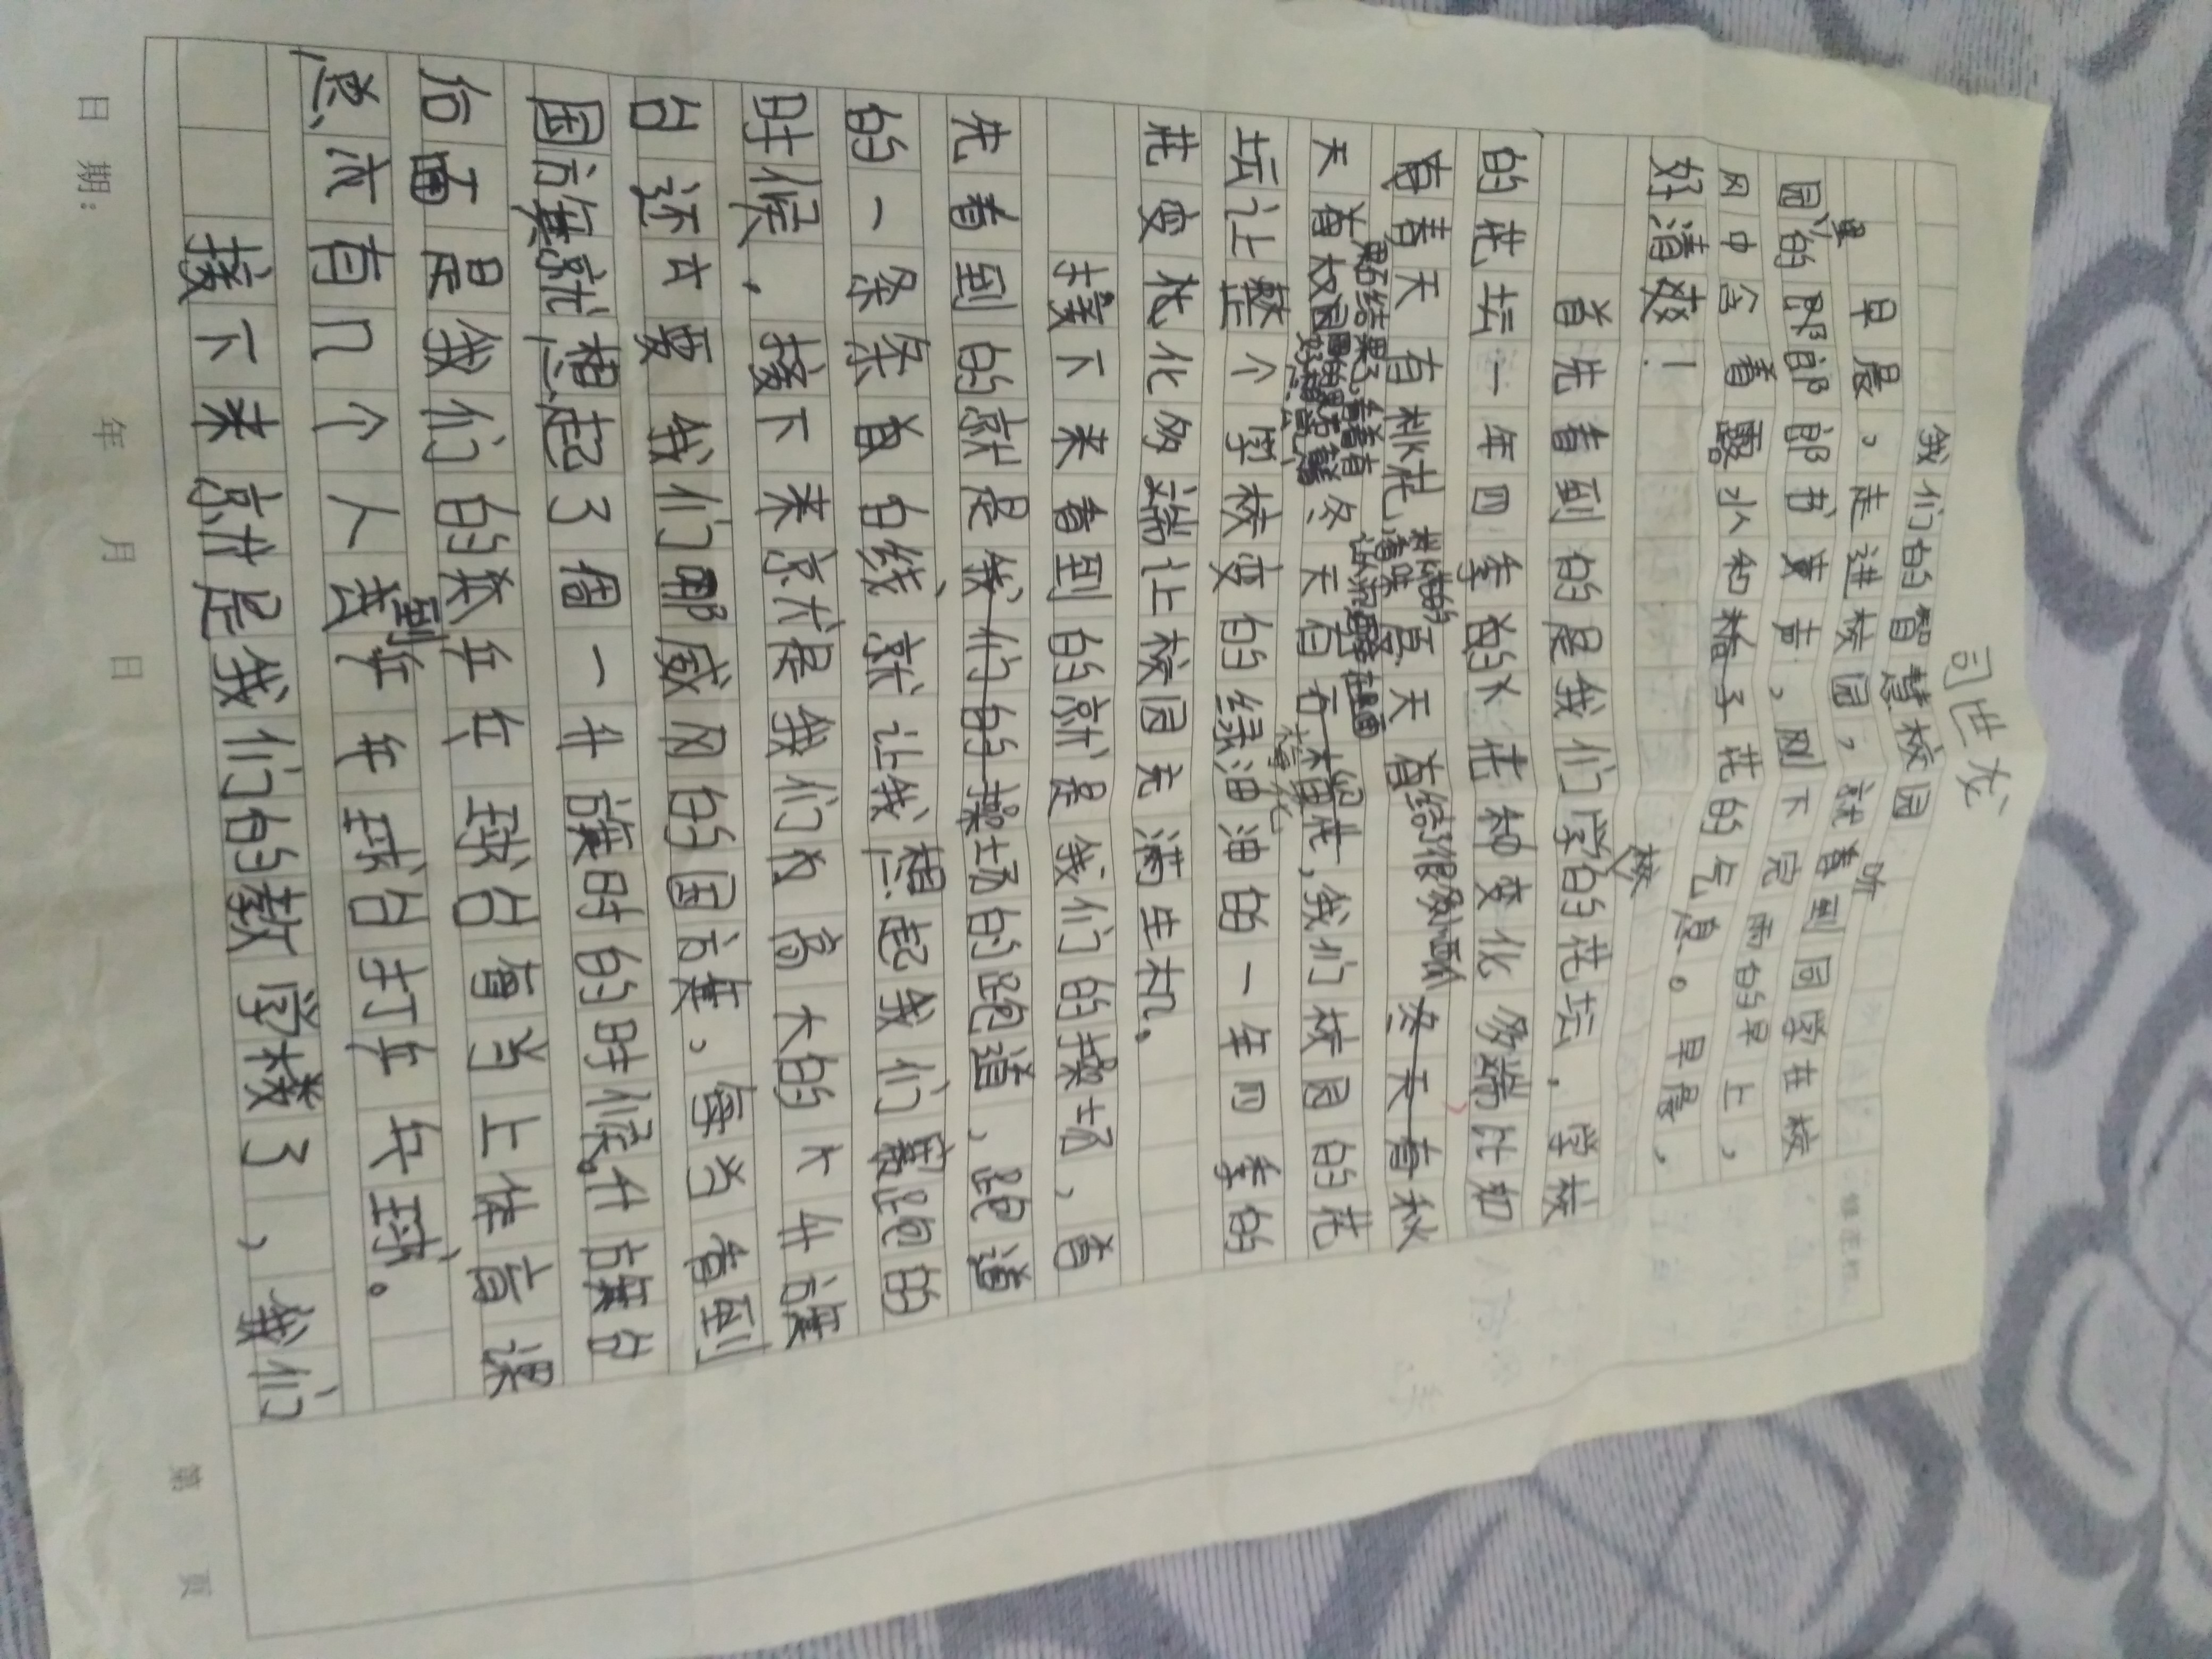 司世龙
我们的智慧校园
早晨，走进校园，就听看到同学在校
园里的郎郎郎书声，刚下完雨的早上，
风中含着露水和栀子花的气息。早晨，
好清爽！
首先看到的是我们学校的花坛，学校
的花坛一年四季的花种变化多端比如
春天有桃花，夏天有
冬天春秋
天有
冬天有
花，我们校园的花
坛让整个学校变的绿油油的一年四季的
花变化多端让校园充满生机。
接下来看到的就是我们的操场，首
先看到的就是我们的操场的跑道，跑道
的一条条首白线就让我想起我们赛跑的
时候，接下来就是我们的高大的大升旗
台还大要我们那威风的国旗，每当看到
国旗就想起了周一升旗时的时候。升旗台
后面是我们的乒乓球台有当上体育课
总有几个人去到乒乓球台打乒乓球。
接下来就是我们的教学楼了，我们
日期： 年 月 日
第 页